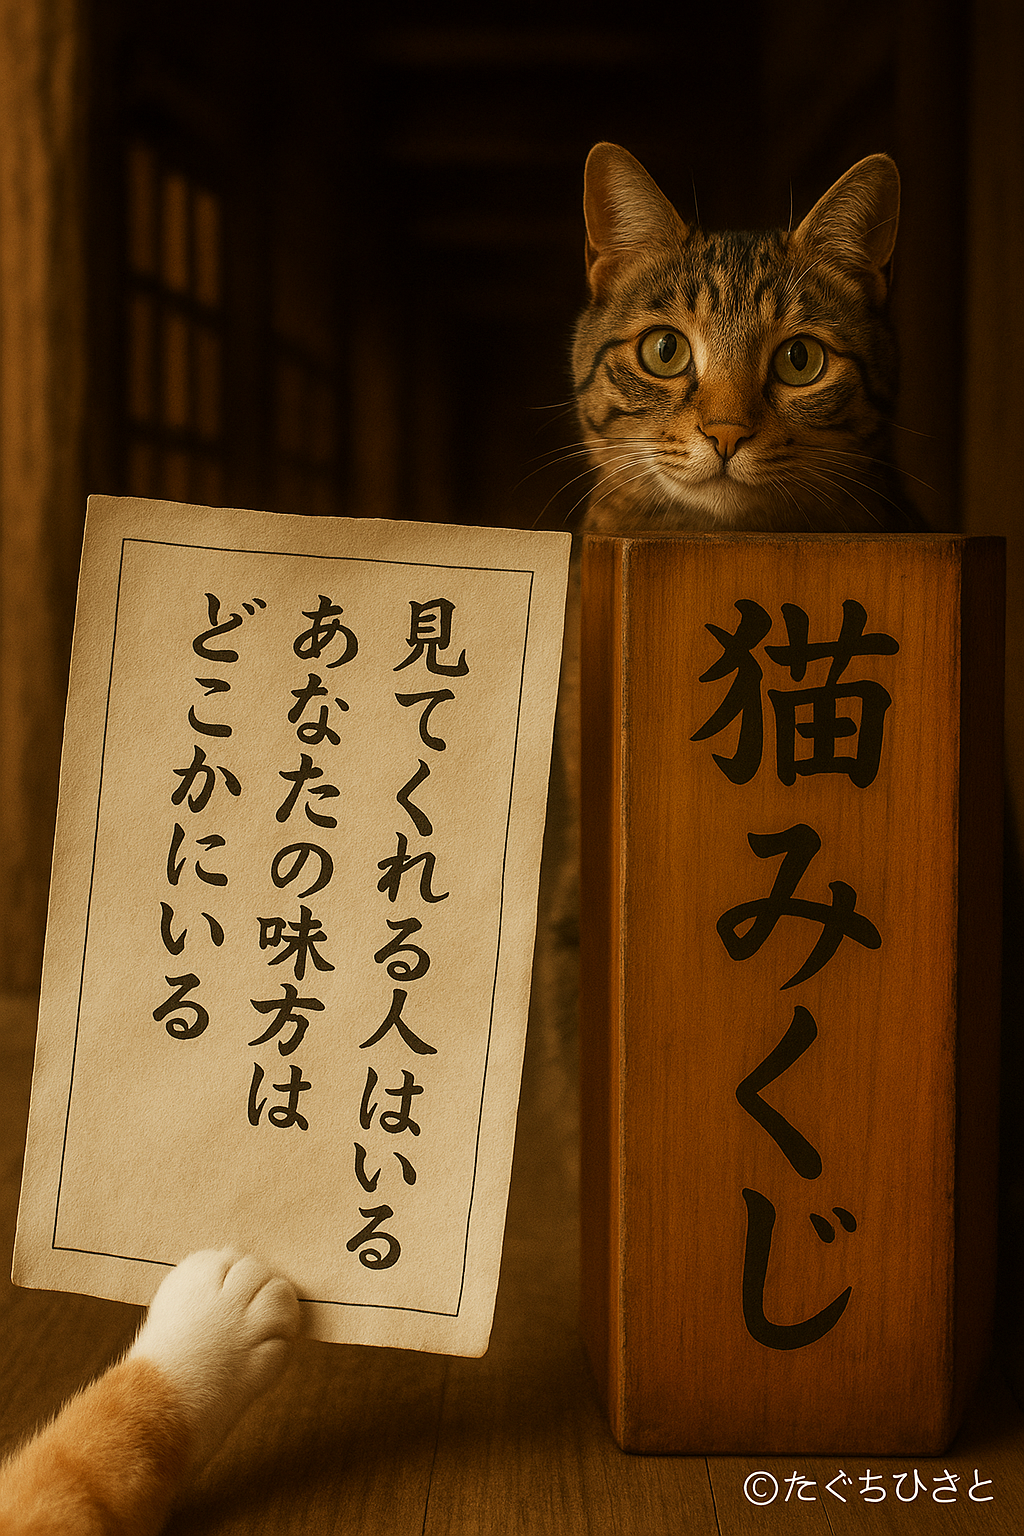 見てくれる人はいる
あなたの味方は
どこかにいる
猫みくじ
©たぐちひさと